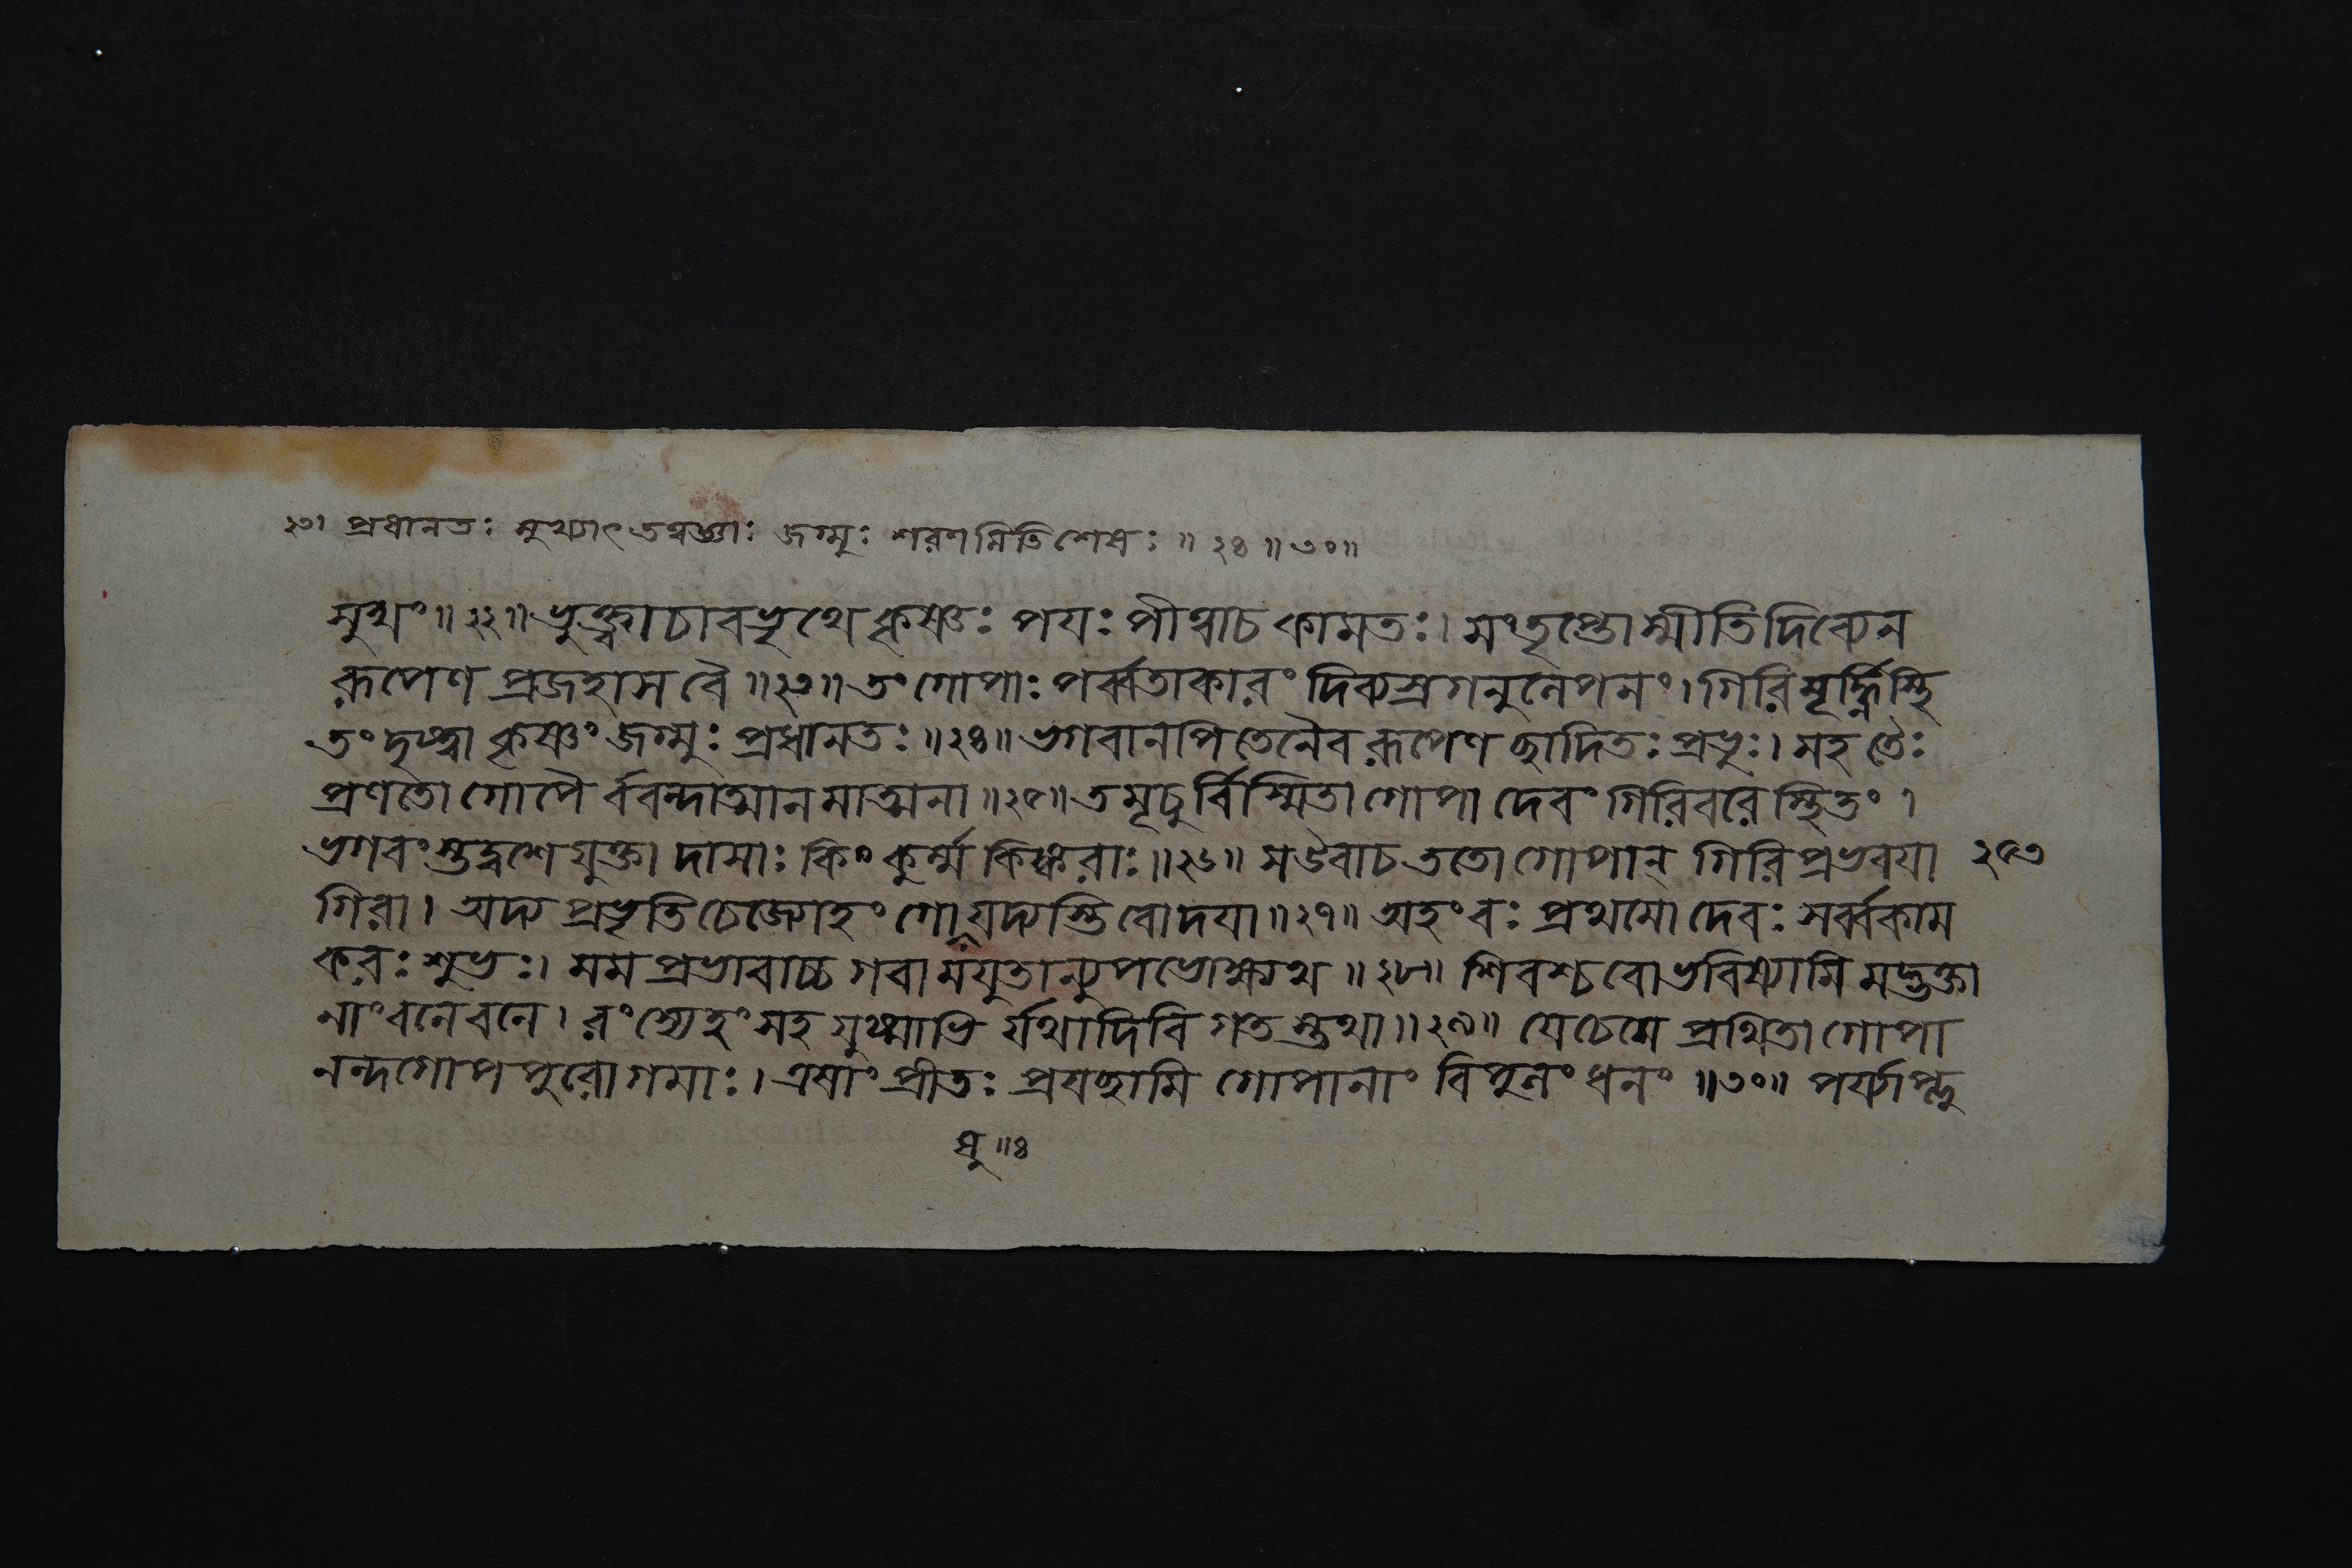 ২৩। প্রধানতঃ মুখ্যাৎ তন্বজ্ঞাঃ জগ্মুঃ শরণমিতিশেষঃ ॥ ২৪ ॥ ৩০॥
মুখং॥ ২২॥ ভুক্ত্বাচাবভৃথে কৃষ্ণঃ পয়ঃ পীত্বাচ কামতঃ। সংতৃপ্তোস্মীতি দিব্যেন
রূপেণ প্রজহাস বৈ ॥২৩॥ তং গোপাঃ পর্ব্বতাকারং দিব্যস্রগনুলেপনং। গিরিমূর্দ্ধ্নিস্থি
তং দৃষ্ট্বা কৃষ্ণং জগ্মুঃ প্রধানতঃ ॥২৪॥ ভগবানপি তেনৈব রূপেণ ছাদিতঃ প্রভুঃ। সহ তৈঃ
প্রণতো গোপৈ র্ববন্দাত্মানমাত্মনা ॥২৫॥ তমূচুর্বিস্মিতা গোপা দেবং গিরিবরে স্থিতং ।
ভগবংস্তদ্বশে যুক্তা দাসাঃ কিং কুর্ম্ম কিঙ্করাঃ ॥২৬॥ স উবাচ ততো গোপান্ গিরিপ্রভবয়া ২৫৩
গিরা। অদ্য প্রভৃতি চেজ্যোহং গোষু যদ্যস্তি বো দয়া ॥২৭॥ অহং বঃ প্রথমো দেবঃ সর্ব্বকাম
করঃ শুভঃ। মম প্রভাবাচ্চ গবামযুতান্যুপভোক্ষ্যথ ॥২৮॥ শিবশ্চ বো ভবিষ্যামি মদ্ভক্তা
নাং বনে বনে। রংস্যেহং সহ যুষ্মাভি র্যথা দিবি গতস্তথা ॥২৯॥ যে চেমে প্রথিতা গোপা
নন্দগোপপুরোগমাঃ। এষাং প্রীতঃ প্রযছামি গোপানাং বিপুলং ধনং ॥৩০॥ পর্য্যাপ্নু